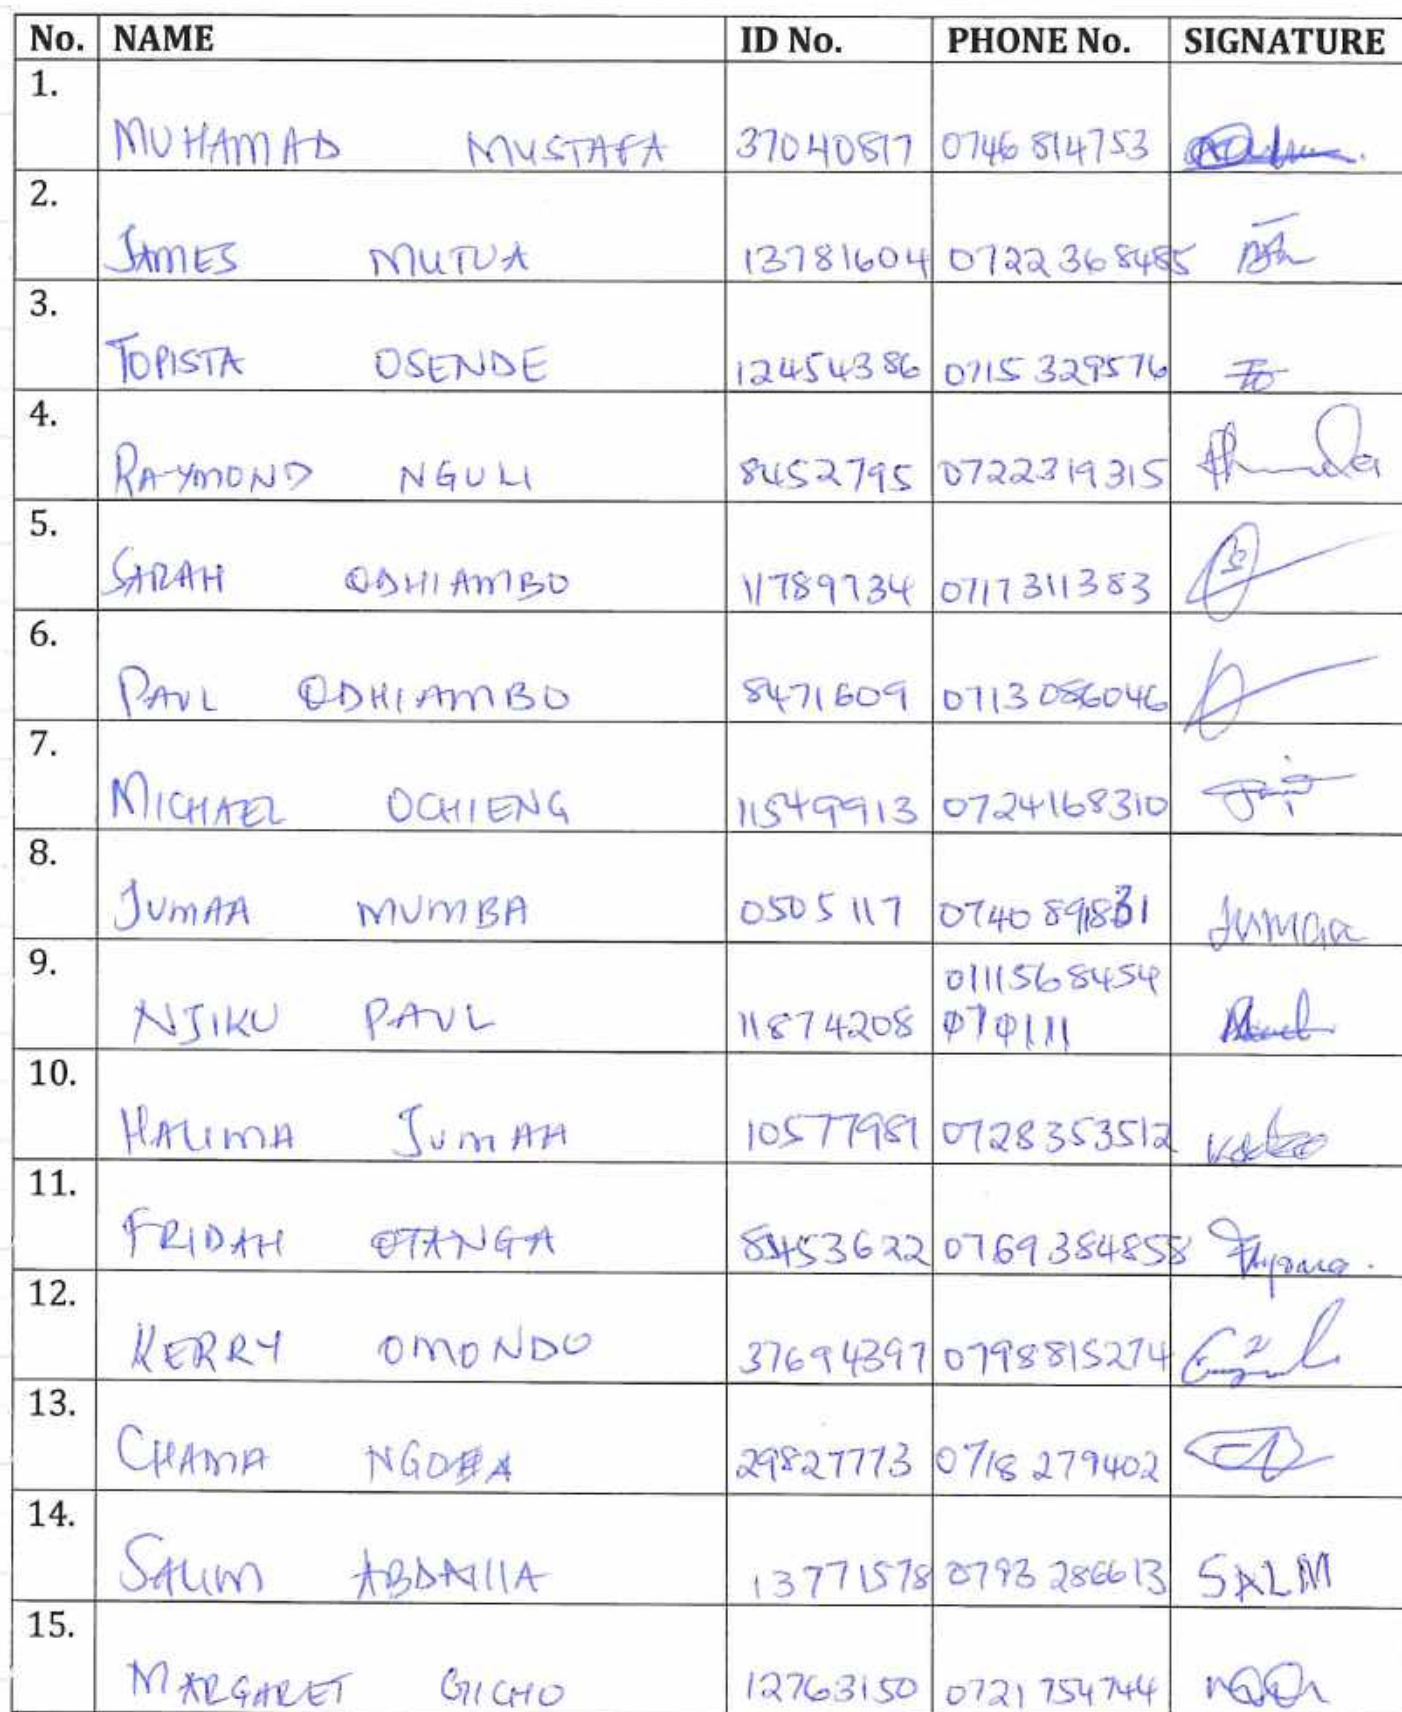 No. NAME ID No. PHONE No. SIGNATURE
1. MUHAMAD MUSTAFA 37040817 0746 814753
2. JAMES MUTUA 13781604 0722 368485
3. TOPISTA OSENDE 12454386 0715 329576
4. RAYMOND NGULI 8452795 0722319315
5. SARAH ODHIAMBO 11789734 0717311383
6. PAUL ODHIAMBO 8471609 0713 086046
7. MICHAEL OCHIENG 11549913 0724168310
8. JUMAA MUMBA 0505117 0740 891831 Jumaa
9. 0111568454
NJIKU PAUL 11874208 070111
10. HALIMA JUMAA 10577981 0728353512
11. FRIDAH OTANGA 8453622 0769384858
12. KERRY OMONDO 37694397 0798815274
13. CHAMA 29827773 0718 279402
14. SALIM ABDALLA 13771578 0793 286613 SALM
15. MARGARET GICHO 12763150 0721 754744